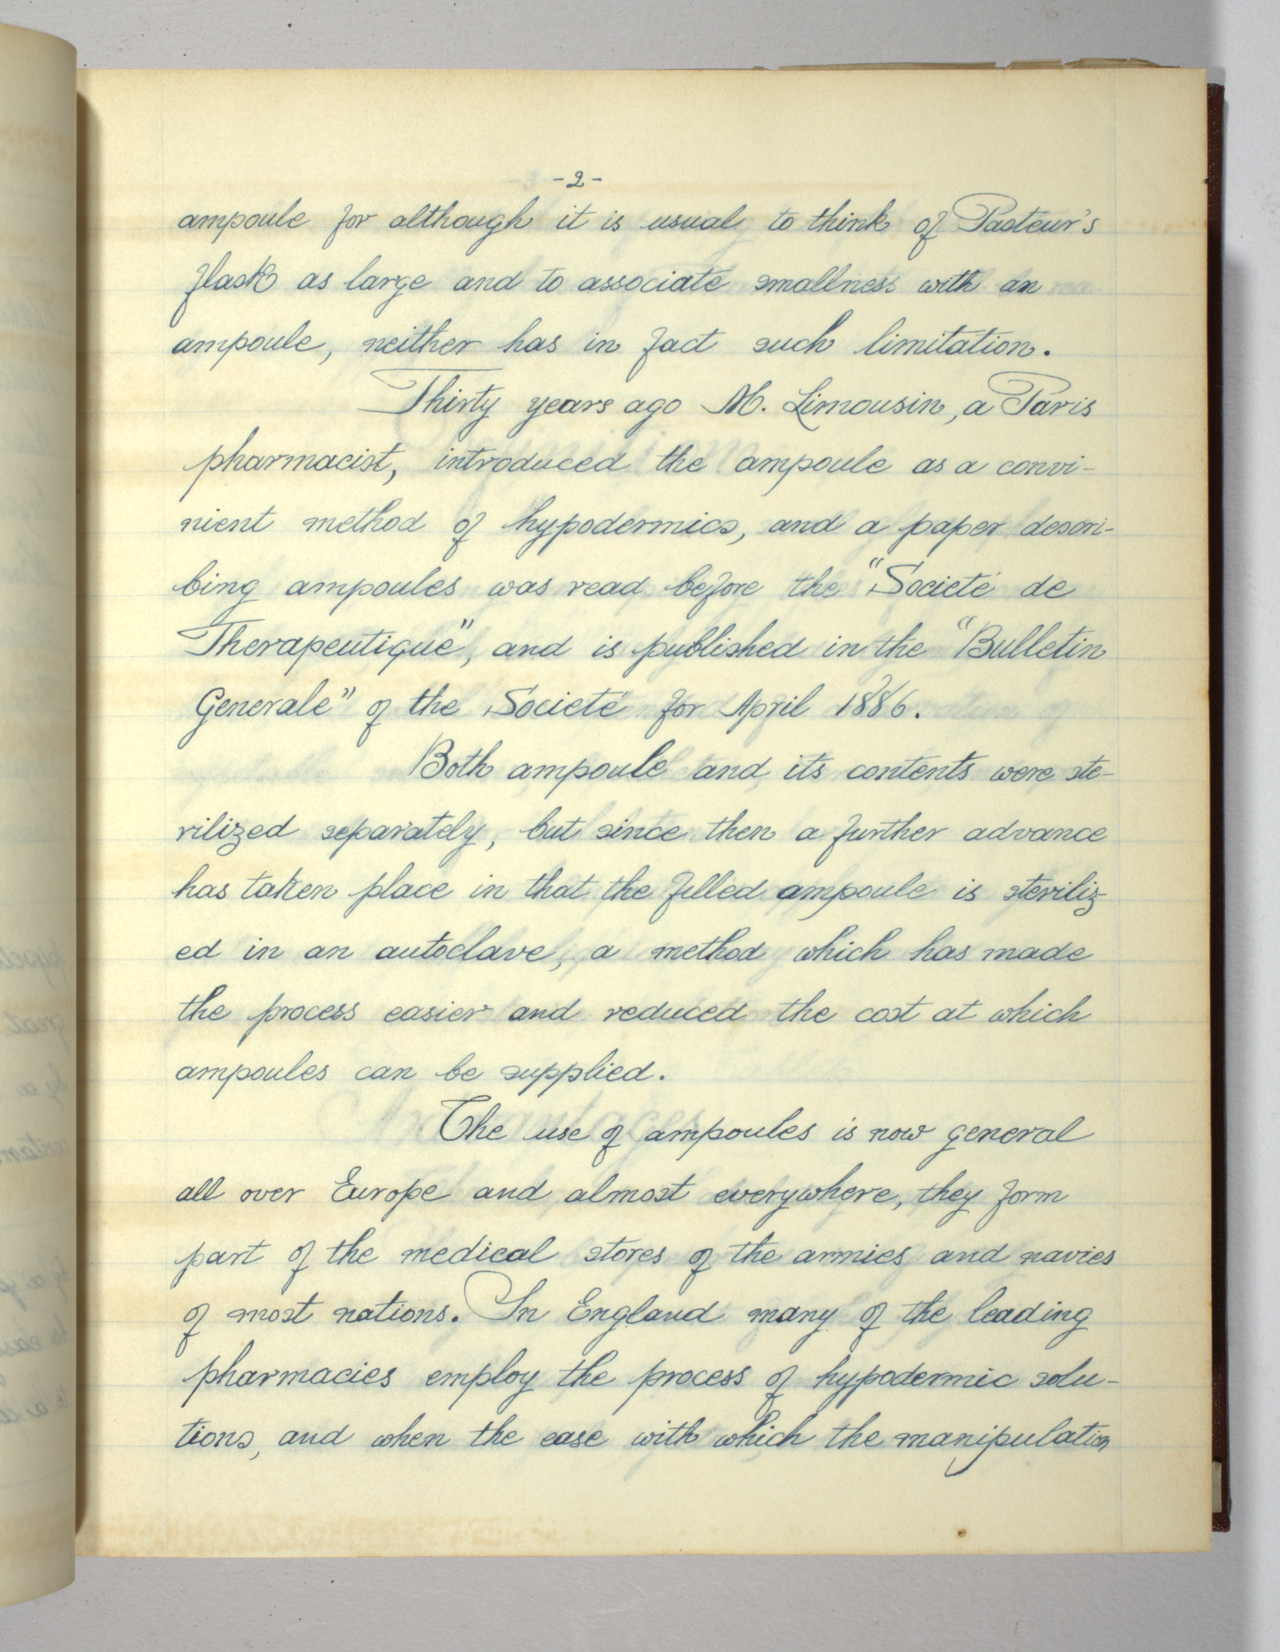 -2-
ampoule for although it is usual to think of Pasteur's
flask as large and to associate smallness with an
ampoule, neither has in fact such limitation.
Thirty years ago M. Limousin, a Paris
pharmacist, introduced the ampoule as a convi-
nient method of hypodermics, and a paper descri-
bing ampoules was read before the "Societé de
Therapeutique", and is published in the "Bulletin
Generale" of the Societé for April 1886.
Both ampoule and its contents were ste-
rilized separately, but since then a further advance
has taken place in that the filled ampoule is steriliz-
ed in an autoclave, a method which has made
the process easier and reduced the cost at which
ampoules can be supplied.
The use of ampoules is now general
all over Europe and almost everywhere, they form
part of the medical stores of the armies and navies
of most nations. In England many of the leading
pharmacies employ the process of hypodermic solu-
tions, and when the ease with which the manipulation